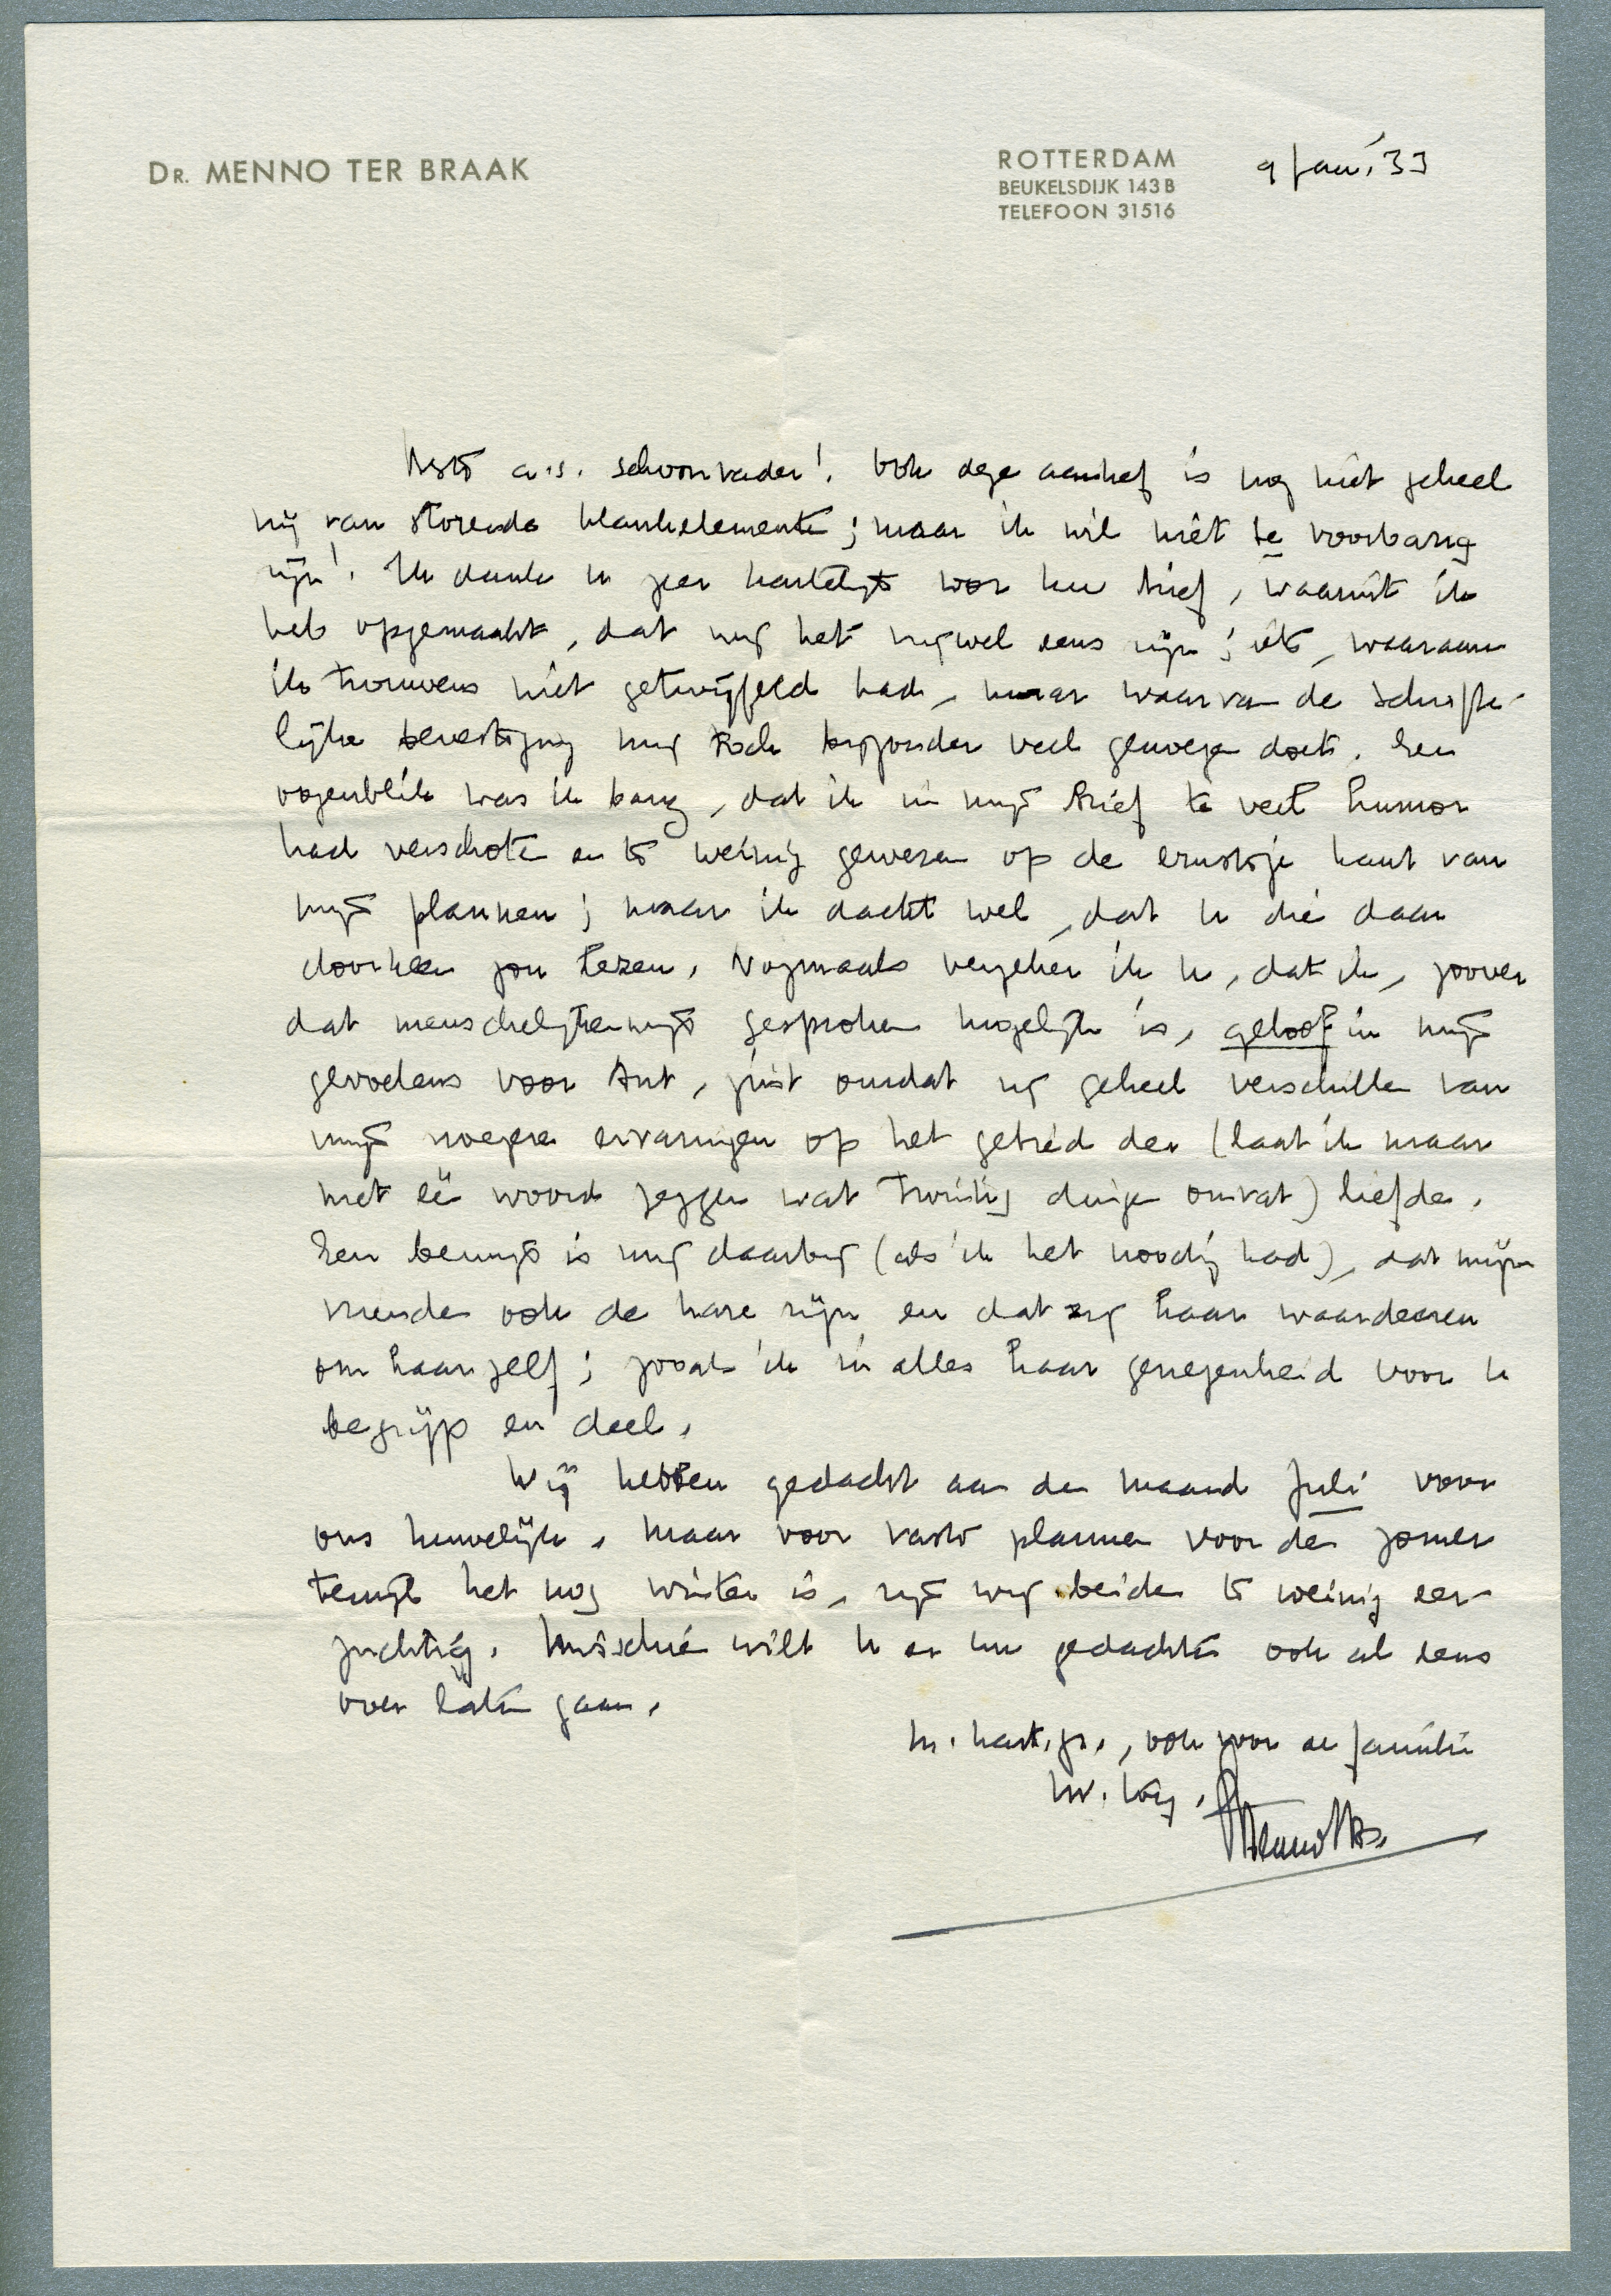 DR. MENNO TER BRAAK
ROTTERDAM
BEUKELSDIJK 143 B
TELEFOON 31516
9 Jan. '33
Beste a.s. schoonvader! Ook deze aanhef is nog niet geheel
vrij van storende klankelementen; maar ik wil niet te voorbarig
zijn! Ik dank u zeer hartelijk voor uw brief, waaruit ik
heb opgemaakt, dat wij het nogwel eens zijn; iets, waaraan
ik trouwens niet getwijfeld had, maar waarvan de schrifte-
lijke bevestiging mij toch bijzonder veel genoegen doet. Een
oogenblik was ik bang, dat ik in mijn brief te veel humor
had verschoten en te weinig gewezen op de ernstige kant van
mijn plannen; maar ik dacht wel, dat u die daar
doorheen zou lezen. Nogmaals verzeker ik u, dat ik, zoover
dat menschelijkerwijs gesproken mogelijk is, geloof in mijn
gevoelens voor Ant, juist omdat zij geheel verschillen van
mijn vroegere ervaringen op het gebied der (laat ik maar
met één woord zeggen wat twintig dingen omvat) liefde.
Een bewijs is mij daarbij (als ik het noodig had), dat mijn
vrienden ook de hare zijn en dat zij haar waardeeren
om haarzelf; zooals ik in alles haar genegenheid voor u
begrijp en deel.
Wij hebben gedacht aan de maand Juli voor
ons huwelijk. Maar voor vaste plannen voor den zomer
terwijl het nog winter is, zijn wij beiden te weinig eer-
zuchtig. Misschien wilt u er uw gedachten ook al eens
over laten gaan.
M. hart. gr., ook voor de familie
Menno tBr.